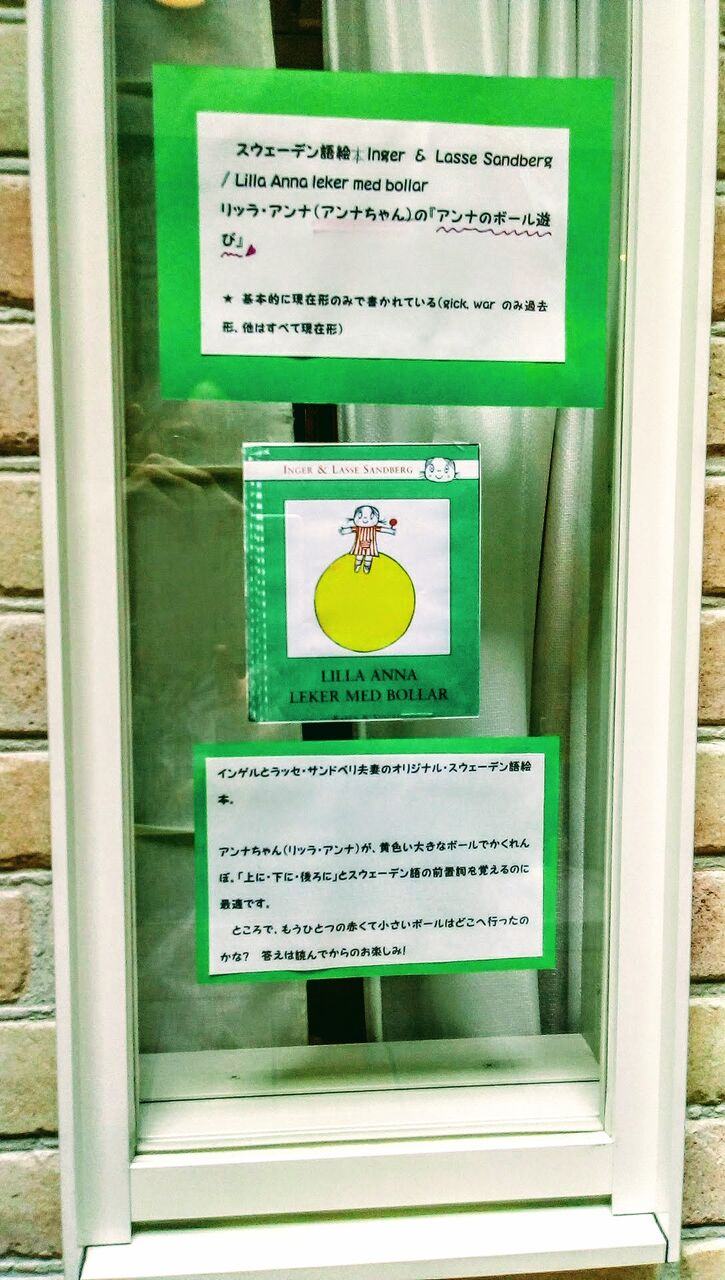 スウェーデン語絵本 Inger & Lasse Sandberg
/ Lilla Anna leker med bollar
リッラ・アンナ(アンナちゃん)の『アンナのボール遊
び』
★ 基本的に現在形のみで書かれている(gick, war のみ過去
形、他はすべて現在形)
INGER & LASSE SANDBERG
LILLA ANNA
LEKER MED BOLLAR
インゲルとラッセ・サンドベリ夫妻のオリジナル・スウェーデン語絵
本。
アンナちゃん(リッラ・アンナ)が、黄色い大きなボールでかくれん
ぼ。「上に・下に・後ろに」とスウェーデン語の前置詞を覚えるのに
最適です。
ところで、もうひとつの赤くて小さいボールはどこへ行ったの
かな? 答えは読んでからのお楽しみ!